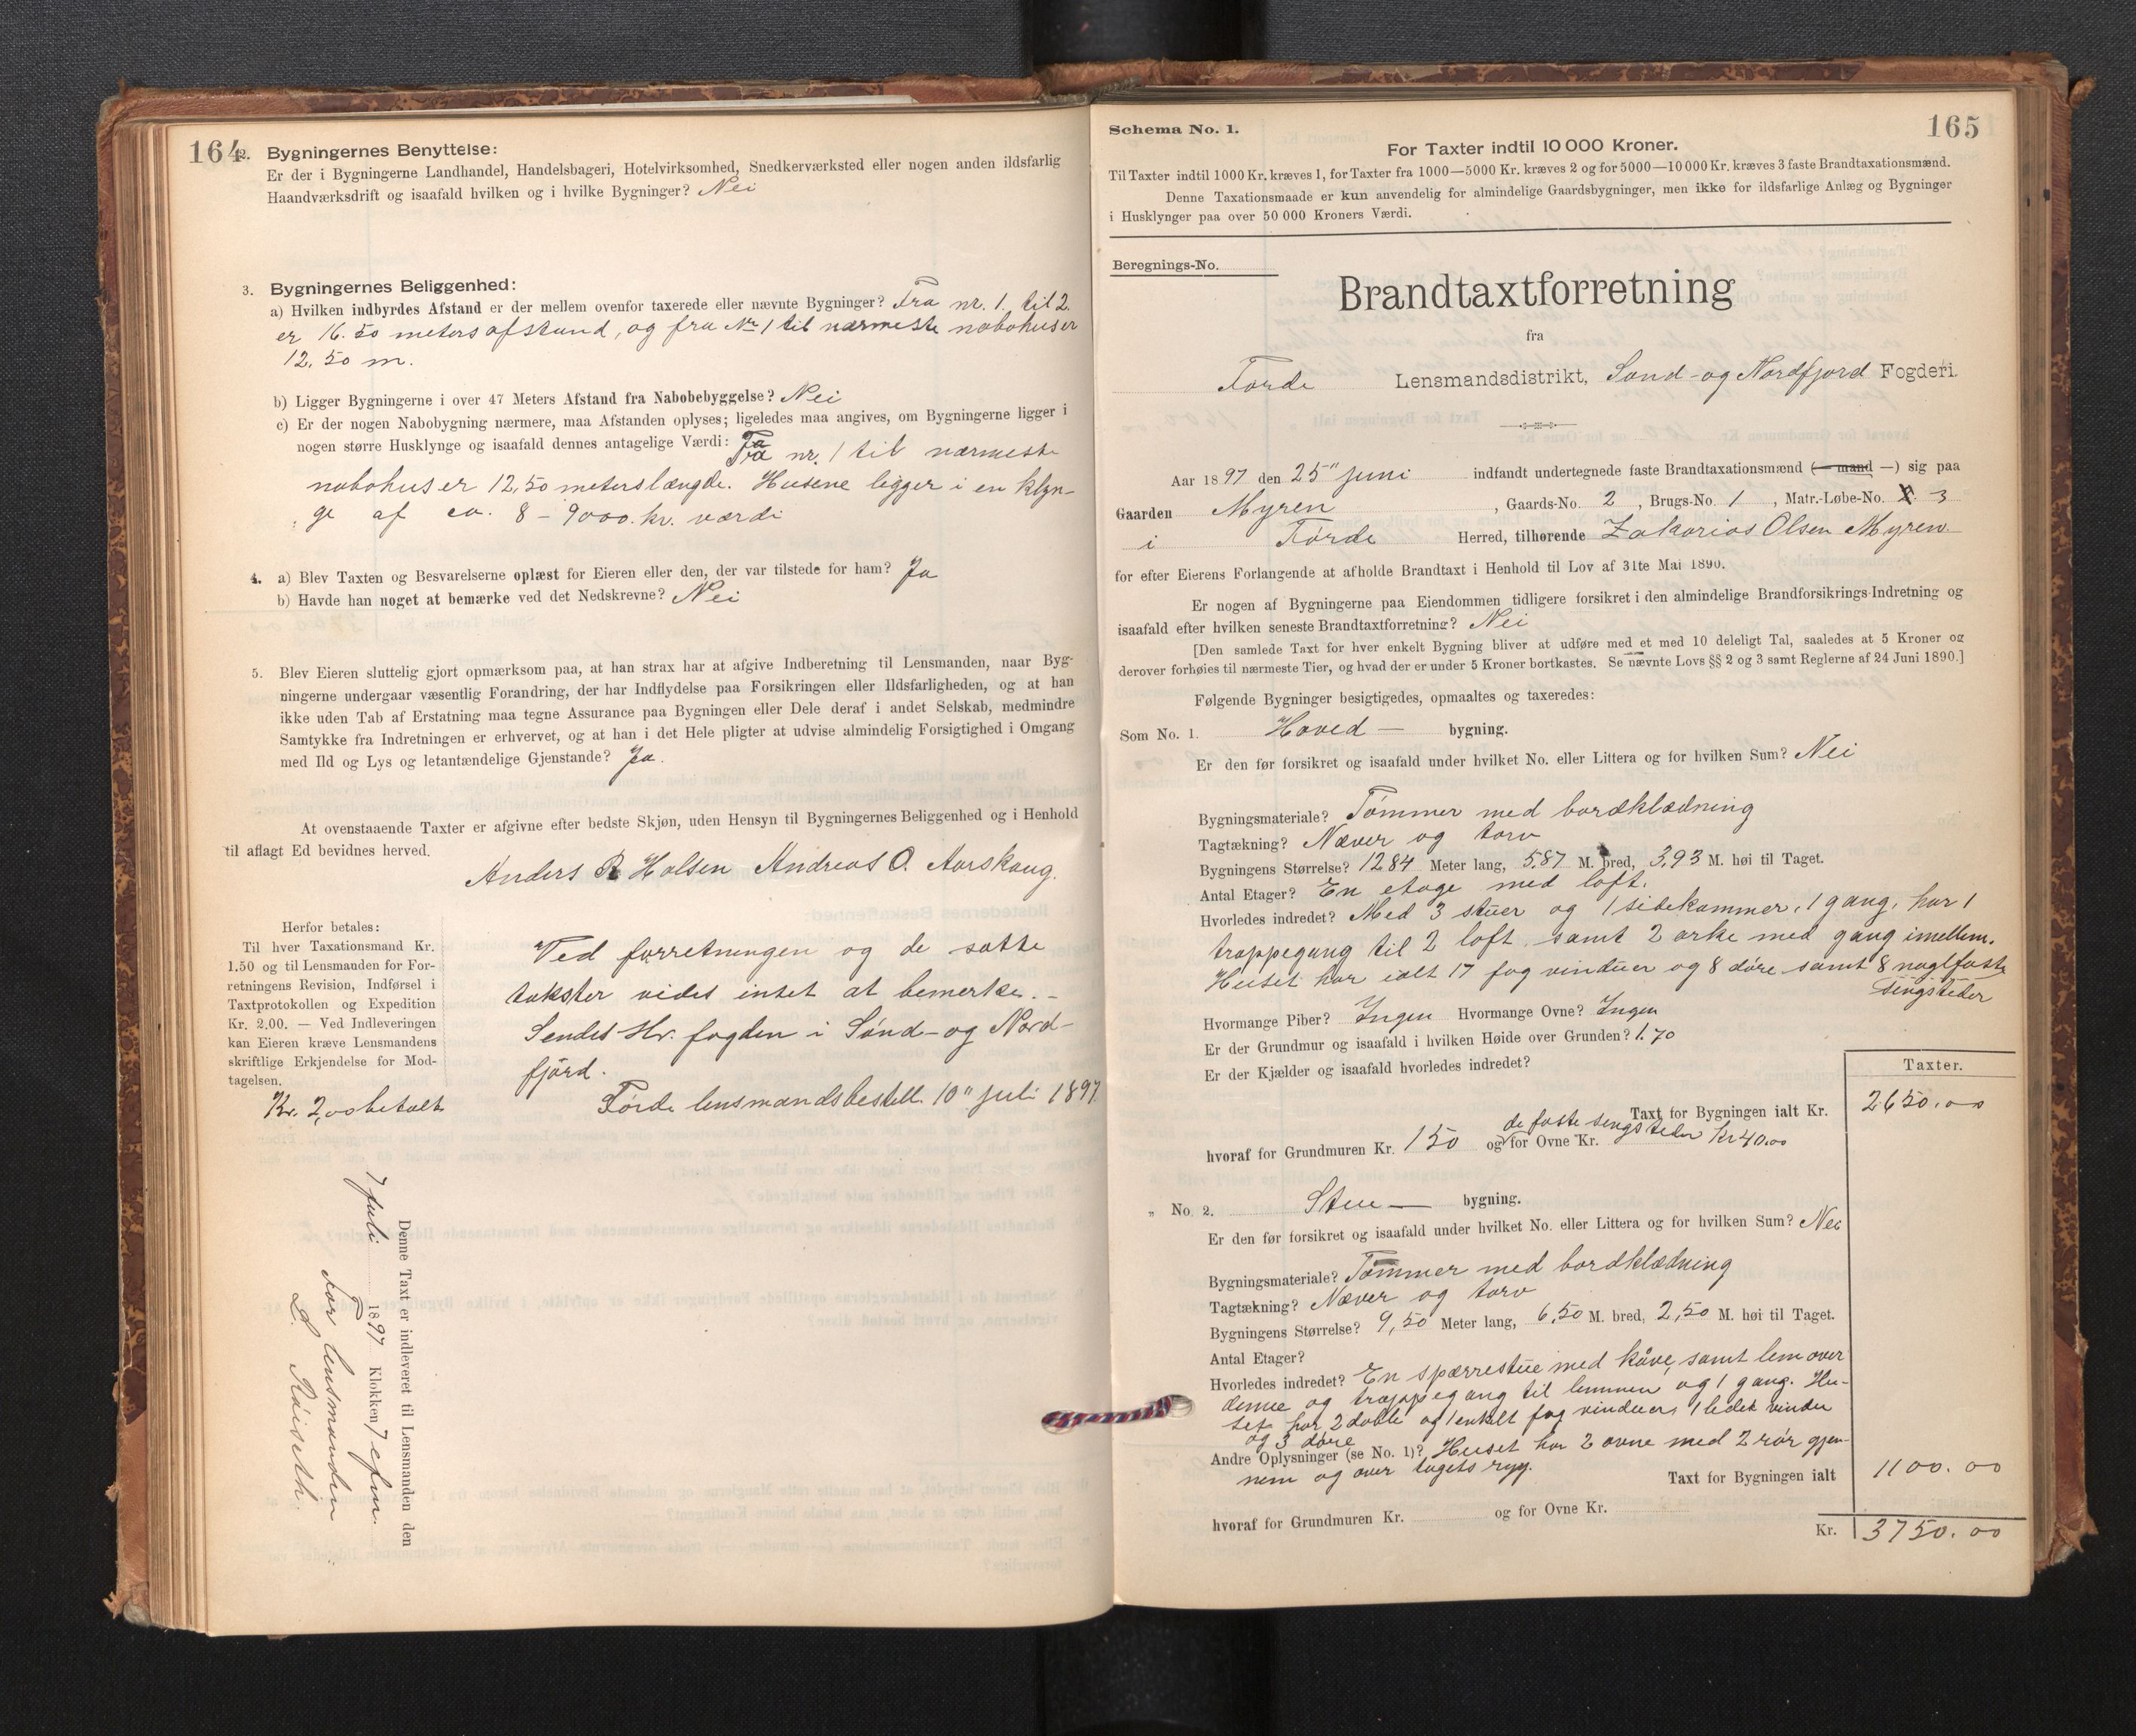 164
2. Bygningernes Benyttelse:
Er der i Bygningerne Landhandel, Handelsbageri, Hotelvirksomhed, Snedkerværksted eller nogen anden ildsfarlig
Haandværksdrift og isaafald hvilken og i hvilke Bygninger? Nei
3. Bygningernes Beliggenhed:
a) Hvilken indbyrdes Afstand er der mellem ovenfor taxerede eller nævnte Bygninger? Fra nr. 1. til 2.
er 16.50 meters afstand, og fra Nr 1 til nærmeste nabohus er
12,50 m.
b) Ligger Bygningerne i over 47 Meters Afstand fra Nabobebyggelse? Nei
c) Er der nogen Nabobygning nærmere, maa Afstanden oplyses; ligeledes maa angives, om Bygningerne ligger i
nogen større Husklynge og isaafald dennes antagelige Værdi: Fra nr. 1 til nærmeste
nabohus er 12,50 meters længde. Husene ligger i en klyn-
ge af ca. 8 – 9000. kr. værdi
4. a) Blev Taxten og Besvarelserne oplæst for Eieren eller den, der var tilstede for ham? Ja
b) Havde han noget at bemærke ved det Nedskrevne? Nei
5. Blev Eieren sluttelig gjort opmærksom paa, at han strax har at afgive Indberetning til Lensmanden, naar Byg-
ningerne undergaar væsentlig Forandring, der har Indflydelse paa Forsikringen eller Ildsfarligheden, og at han
ikke uden Tab af Erstatning maa tegne Assurance paa Bygningen eller Dele deraf i andet Selskab, medmindre
Samtykke fra Indretningen er erhvervet, og at han i det Hele pligter at udvise almindelig Forsigtighed i Omgang
med Ild og Lys og letantændelige Gjenstande? Ja.
At ovenstaaende Taxter er afgivne efter bedste Skjøn, uden Hensyn til Bygningernes Beliggenhed og i Henhold
til aflagt Ed bevidnes herved.
Anders R Halsen Andreas O. Aarskaug.
Herfor betales:
Til hver Taxationsmand Kr.
1.50 og til Lensmanden for For-
retningens Revision, Indførsel i
Taxtprotokollen og Expedition
Kr. 2.00. — Ved Indleveringen
kan Eieren kræve Lensmandens
skriftlige Erkjendelse for Mod-
tagelsen.
Kr. 2,00 betalt
Ved forretningen og de satte
takster vides intet at bemerke. -
Sendes Hr. fogden i Sönd- og Nord-
fjörd.
Förde lensmandsbestill. 10" juli 1897.
Denne Taxt er indleveret til Lensmanden den
7 juli 1897 Klokken 7 efm.
For lensmanden
L. Röiseth.
165
Schema No. 1.
For Taxter indtil 10 000 Kroner.
Til Taxter indtil 1000 Kr. kræves 1, for Taxter fra 1000—5000 Kr. kræves 2 og for 5000—10 000 Kr. kræves 3 faste Brandtaxationsmænd.
Denne Taxationsmaade er kun anvendelig for almindelige Gaardsbygninger, men ikke for ildsfarlige Anlæg og Bygninger
i Husklynger paa over 50 000 Kroners Værdi.
Beregnings-No.
Brandtaxtforretning
fra
Förde Lensmandsdistrikt, Sond- og Nordfjord Fogderi.
Aar 1897 den 25" juni indfandt undertegnede faste Brandtaxationsmænd (— mand —) sig paa
Gaarden Myren, Gaards-No. 2, Brugs-No. 1, Matr.-Løbe-No. 3
i Förde Herred, tilhørende Zakarias Olsen Myren
for efter Eierens Forlangende at afholde Brandtaxt i Henhold til Lov af 31te Mai 1890.
Er nogen af Bygningerne paa Eiendommen tidligere forsikret i den almindelige Brandforsikrings-Indretning og
isaafald efter hvilken seneste Brandtaxtforretning? Nei
[Den samlede Taxt for hver enkelt Bygning bliver at udføre med et med 10 deleligt Tal, saaledes at 5 Kroner og
derover forhøies til nærmeste Tier, og hvad der er under 5 Kroner bortkastes. Se nævnte Lovs §§ 2 og 3 samt Reglerne af 24 Juni 1890.]
Følgende Bygninger besigtigedes, opmaaltes og taxeredes:
Som No. 1. Hoved — bygning.
Er den før forsikret og isaafald under hvilket No. eller Littera og for hvilken Sum? Nei
Bygningsmateriale? Tömmer med bordklædning
Tagtækning? Næver og torv
Bygningens Størrelse? 12.84 Meter lang, 5.87 M. bred, 3,93 M. høi til Taget.
Antal Etager? En etage med loft.
Hvorledes indredet? Med 3 stuer og 1 sidekammer, 1 gang, har 1
trappegang til 2 loft, samt 2 arke med gang imellem.
Huset har ialt 17 fag vinduer og 8 döre samt 8 naglfaste
sengsteder
Hvormange Piber? Ingen Hvormange Ovne? Ingen
Er der Grundmur og isaafald i hvilken Høide over Grunden? 1.70
Er der Kjælder og isaafald hvorledes indredet?
Taxter.
Taxt for Bygningen ialt Kr. 2650.00
de faste sengsteder Kr 40.00
hvoraf for Grundmuren Kr. 150 og for Ovne Kr.
„ No. 2. Stue — bygning.
Er den før forsikret og isaafald under hvilket No. eller Littera og for hvilken Sum? Nei
Bygningsmateriale? Tömmer med bordklædning
Tagtækning? Næver og torv
Bygningens Størrelse? 9,50 Meter lang, 6,50 M. bred, 2,50 M. høi til Taget.
Antal Etager?
Hvorledes indredet? En spærrestue med kåve, samt lem over
denne og trappegang til lemmen og 1 gang. Hu-
set har 2 doble og 1 enkelt fag vinduer, 1 vindu
og 3 döre
Andre Oplysninger (se No. 1)? Huset har 2 ovne med 2 rör gjen-
nem og over tagets ryg.
Taxt for Bygningen ialt 1100.00
hvoraf for Grundmuren Kr. og for Ovne Kr.
Kr. 3750.00